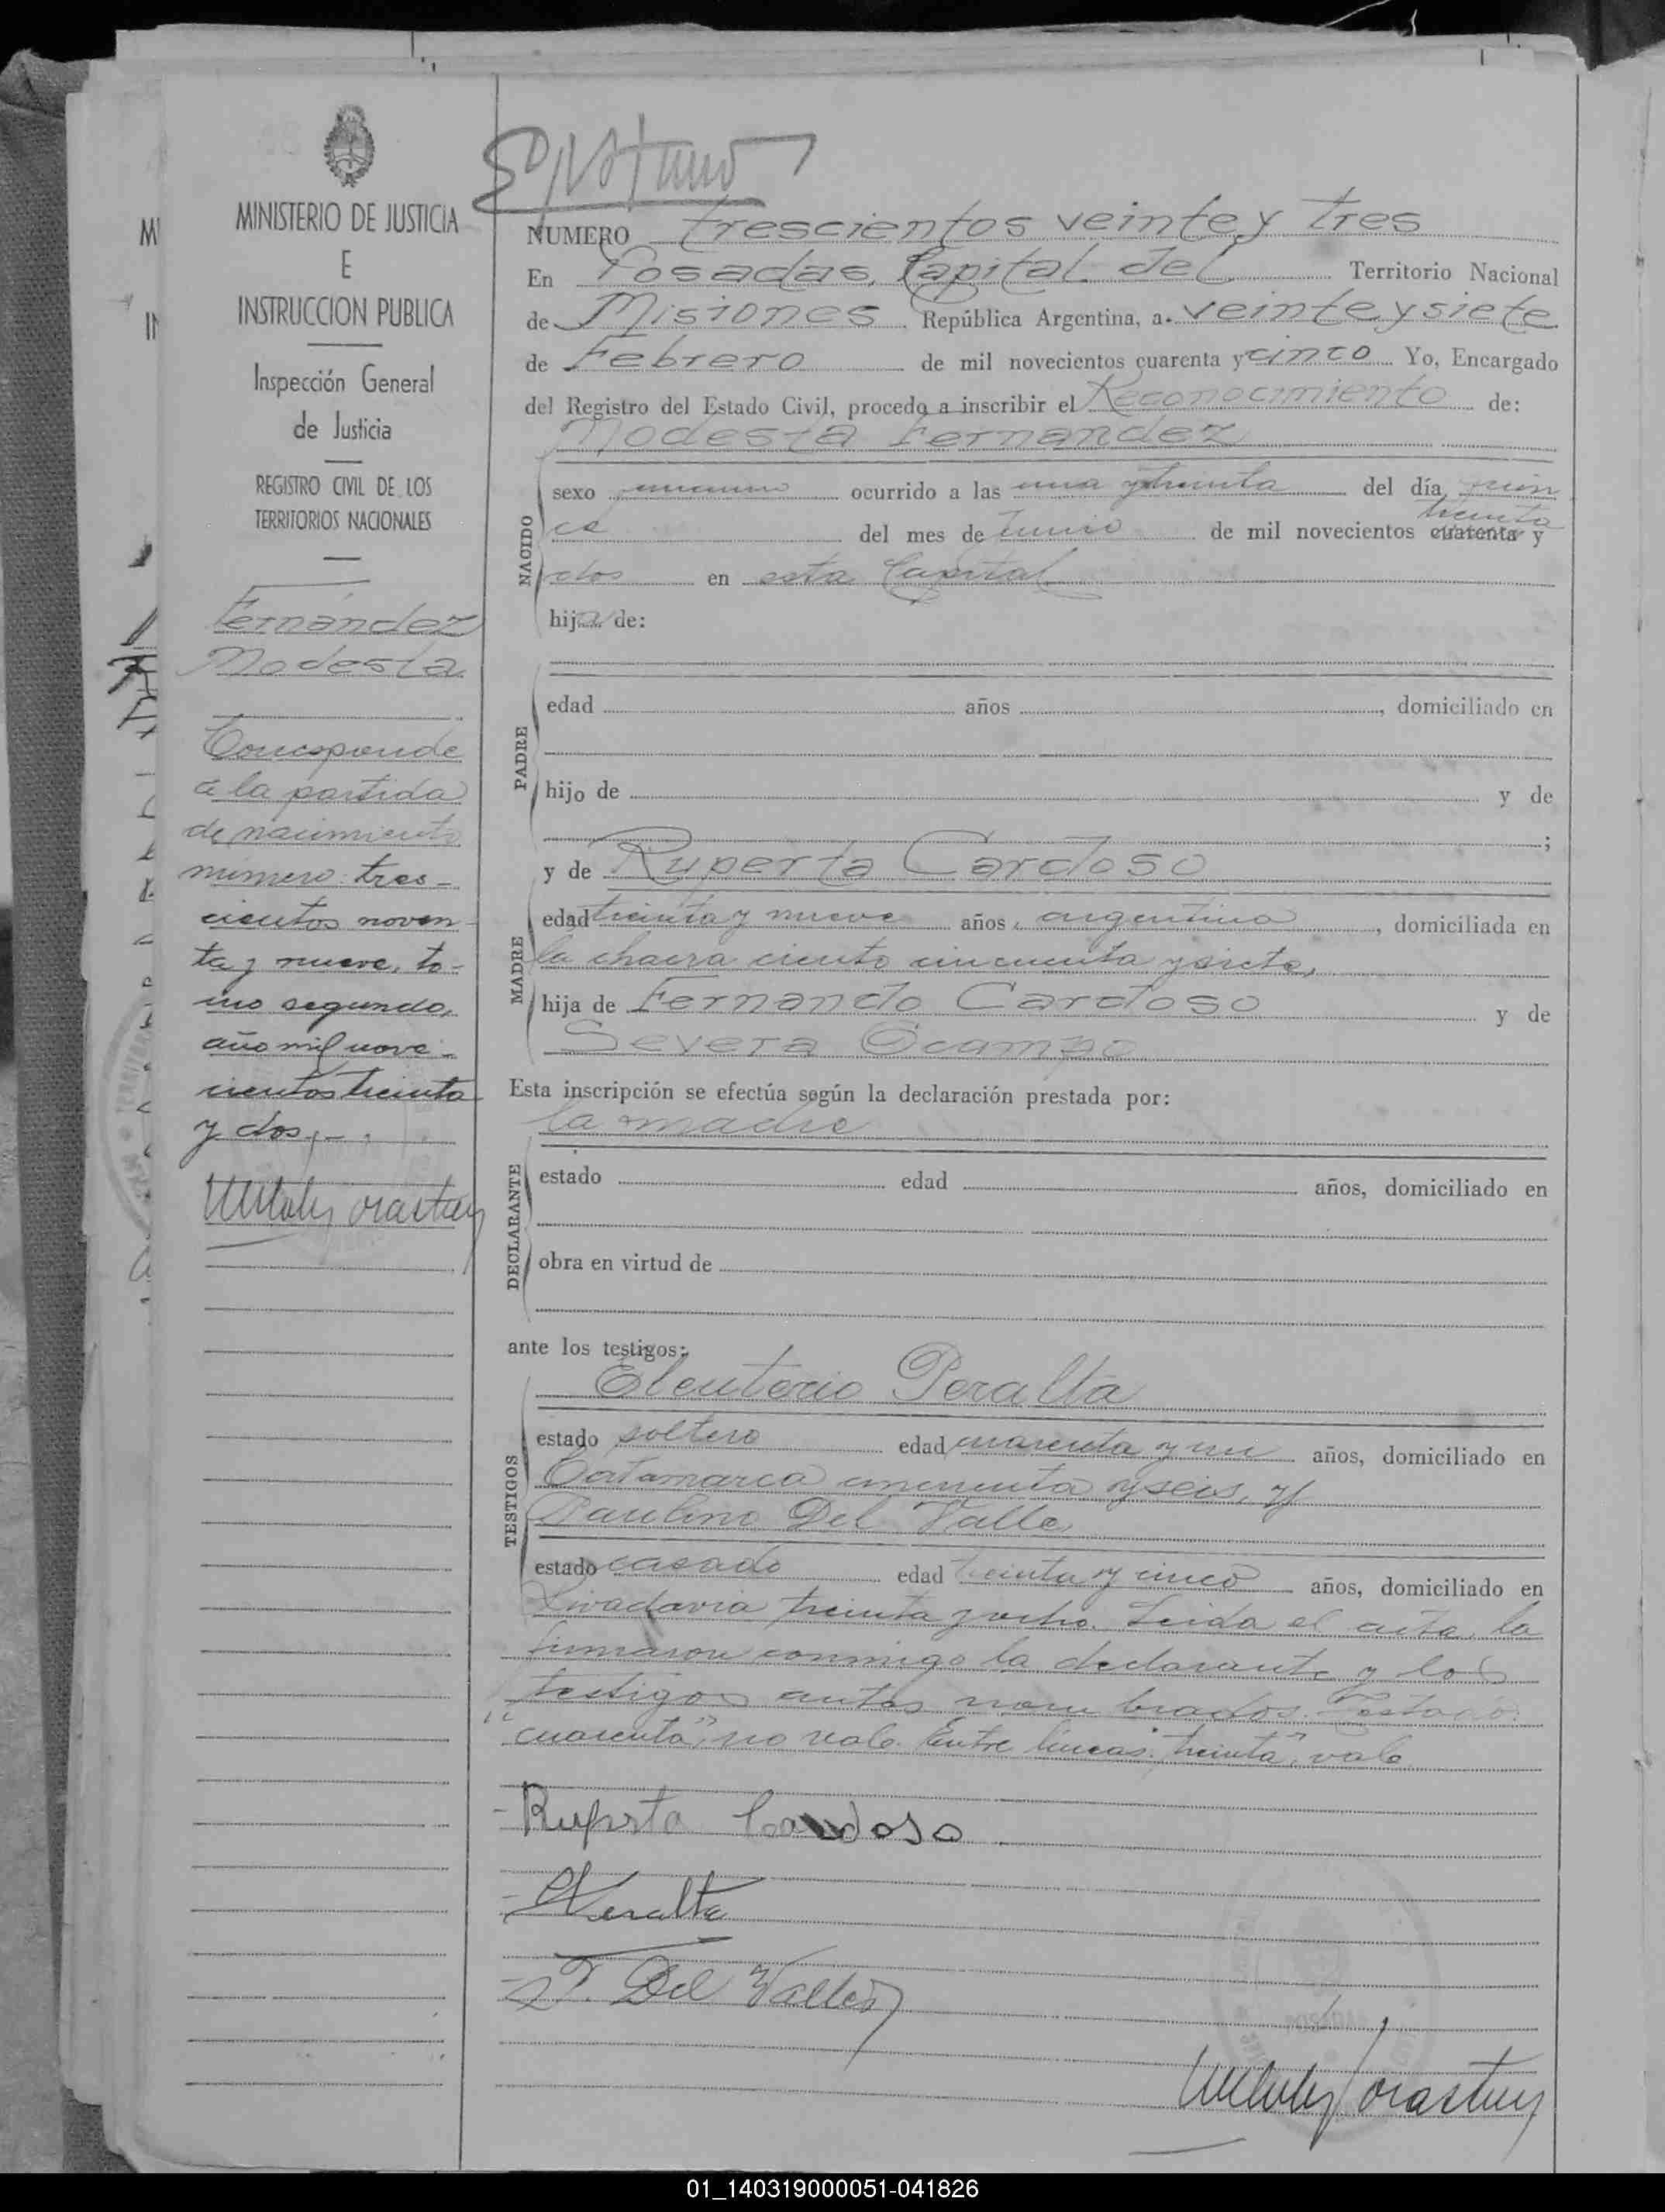 MINISTERIO DE JUSTICIA
E
INSTRUCCION PUBLICA
Inspección General
de Justicia
REGISTRO CIVIL DE LOS
TERRITORIOS NACIONALES
Fernández
Modesta
Corresponde
a la partida
de nacimiento
número tres-
cientos noven-
ta y nueve, to-
mo segundo,
año mil nove-
cientos treinta
y dos.-
NUMERO trescientos veinte y tres
En Posadas, Capital del Territorio Nacional
de Misiones República Argentina, a veinte y siete
de Febrero de mil novecientos cuarenta y cinco Yo, Encargado
del Registro del Estado Civil, procedo a inscribir el Reconocimiento de:
Modesta Fernandez
NACIDO
sexo ocurrido a las una y treinta del día quin
treinta
ce del mes de Junio de mil novecientos cuarenta y
dos en esta Capital
hija de:
PADRE
edad años , domiciliado en
hijo de y de
;
y de Ruperta Cardoso
MADRE
edad treinta y nueve años, argentina, domiciliada en
la chacra ciento cincuenta y siete,
hija de Fernando Cardoso y de
Severa Ocampo
Esta inscripción se efectúa según la declaración prestada por:
la madre
DECLARANTE
estado edad años, domiciliado en
obra en virtud de
ante los testigos:
Eleuterio Peralta
TESTIGOS
estado soltero edad cuarenta y un años, domiciliado en
Catamarca cincuenta y seis, y
Paulino Del Valle,
estado casado edad treinta y cinco años, domiciliado en
Rivadavia treinta y ocho. Leida el acta, la
firmaron conmigo la declarante y los
testigos antes nombrados. Testado:
"cuarenta", no vale. Entre líneas: treinta", vale
Ruperta Cardoso
Peralta
P. Del Valle
01_140319000051-041826